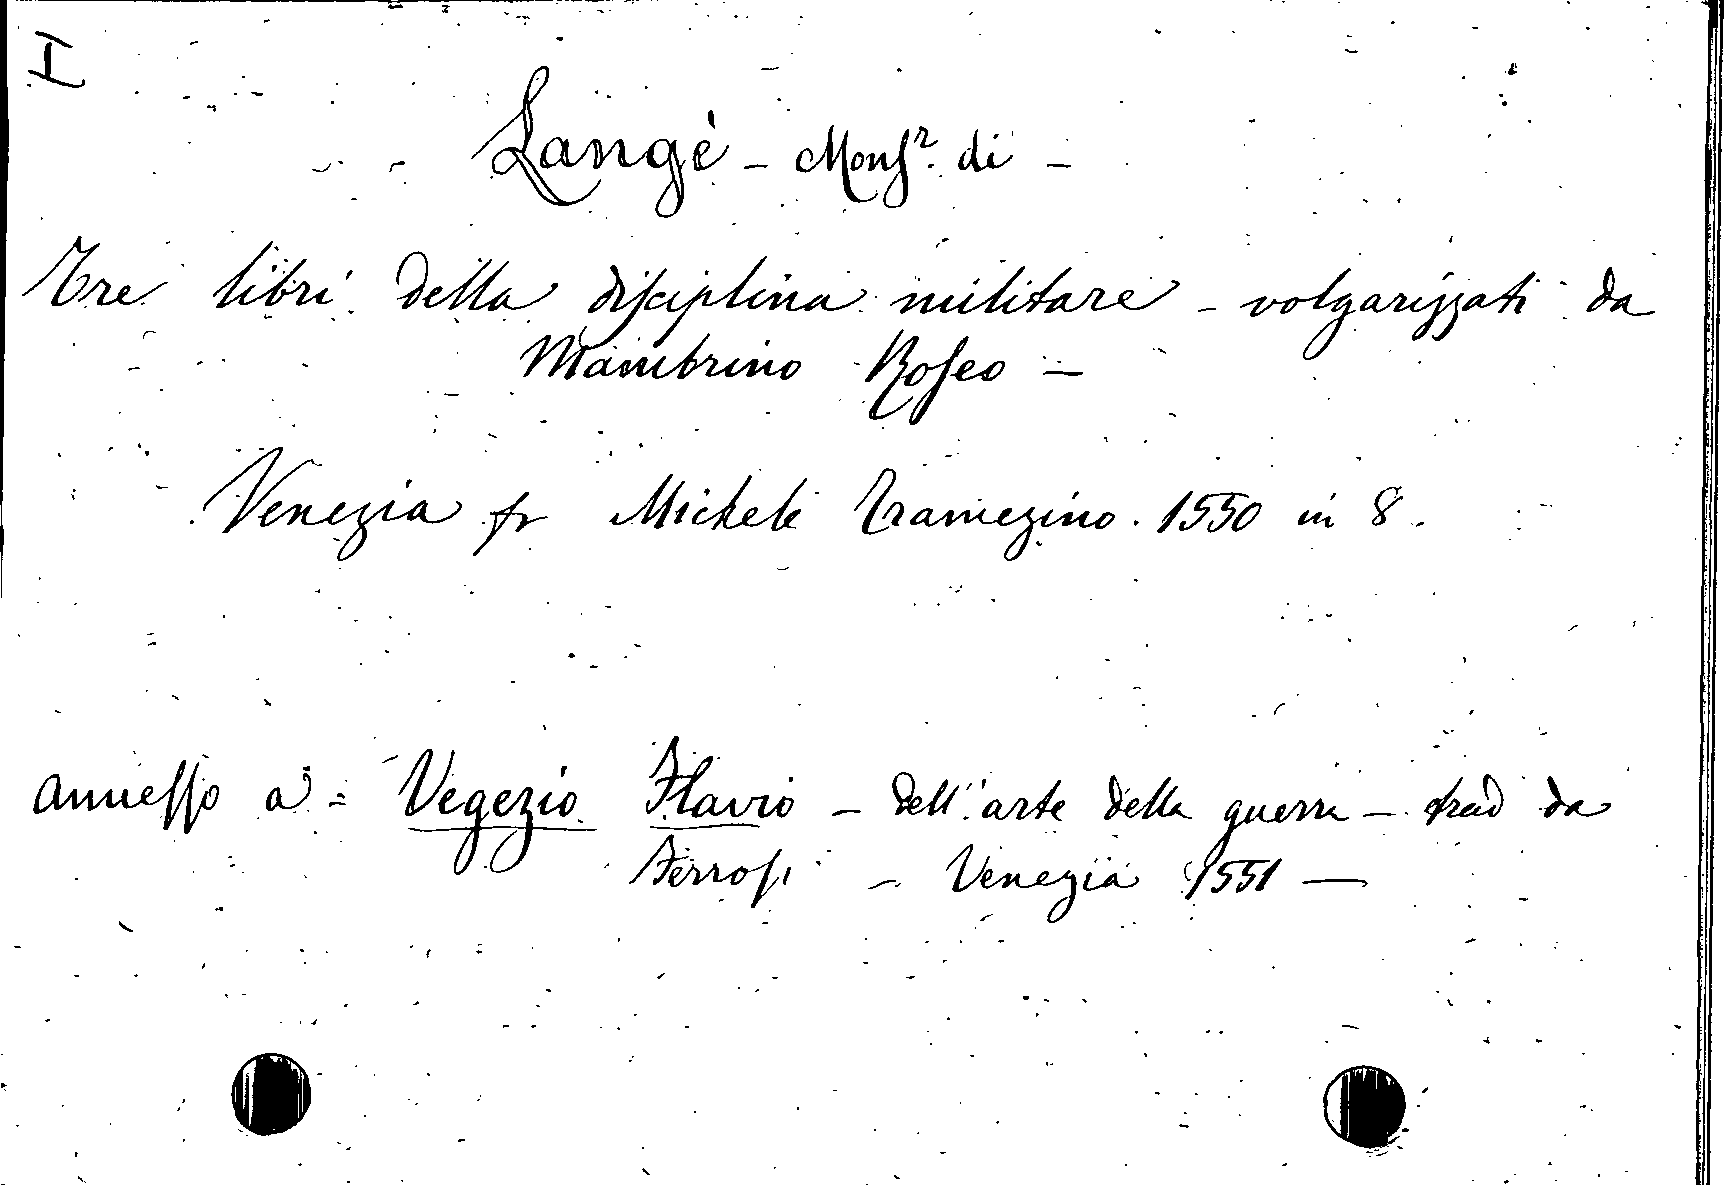 I
Langè - Monsr. di -
Tre libri della disciplina militare - volgarizzati da
Mambrino Roseo -
Venezia pr Michele Tramezino. 1550 in 8.
annesso a = Vegezio Flavio - dell'arte della guerra - trad da
Ferrosi - Venezia 1551 -